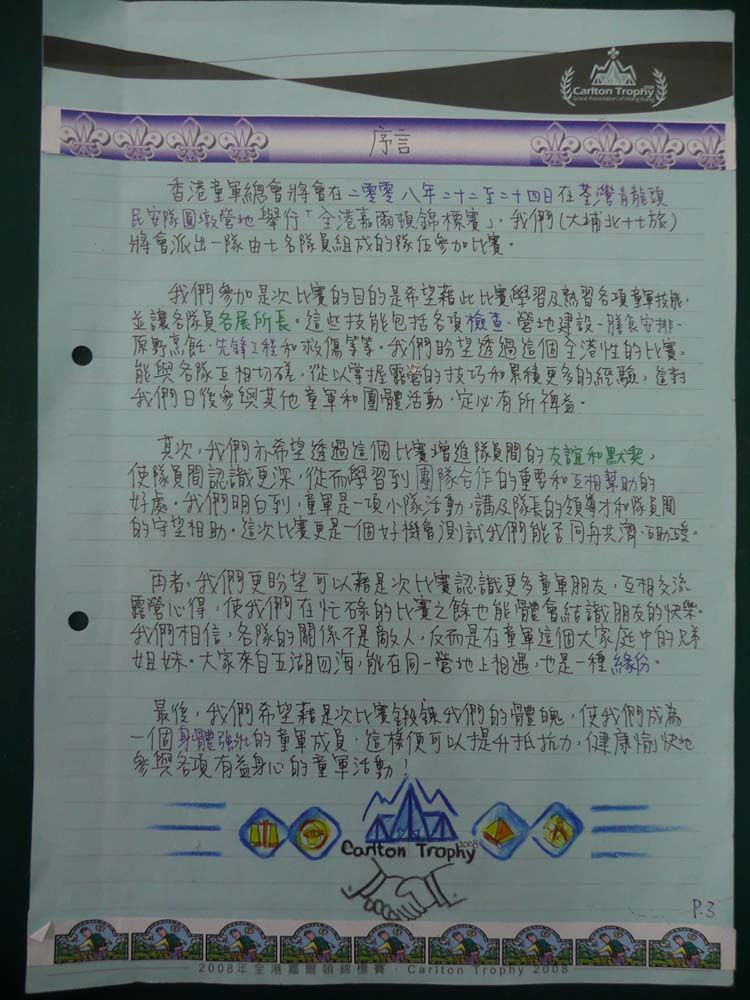 Carlton Trophy
Scout Association of Hong Kong
序言
香港童軍總會將會在二零零八年二十二至二十四日在荃灣青龍頭
民安隊圓墩營地舉行「全港嘉爾頓錦標賽」。我們(大埔北十七旅)
將會派出一隊由七名隊員組成的隊伍參加比賽。
我們參加是次比賽的目的是希望藉此比賽學習及熟習各項童軍技能,
並讓各隊員各展所長。這些技能包括各項檢查、營地建設、膳食安排、
原野烹飪、先鋒工程和救傷等等。我們盼望透過這個全港性的比賽,
能與各隊互相切磋,從以掌握露營的技巧和累積更多的經驗,這對
我們日後參與其他童軍和團體活動,定必有所裨益。
其次,我們亦希望透過這個比賽增進隊員間的友誼和默契,
使隊員間認識更深,從而學習到團隊合作的重要和互相幫助的
好處。我們明白到,童軍是一項小隊活動,講及隊長的領導才和隊員間
的守望相助。這次比賽更是一個好機會測試我們能否同舟共濟、互助互愛。
再者,我們更盼望可以藉是次比賽認識更多童軍朋友,互相交流
露營心得,使我們在忙碌的比賽之餘也能體會結識朋友的快樂。
我們相信,各隊的關係不是敵人,反而是在童軍這個大家庭中的兄弟
姐妹。大家來自五湖四海,能在同一營地上相遇,也是一種緣份。
最後,我們希望藉是次比賽鍛鍊我們的體魄,使我們成為
一個身體強壯的童軍成員,這樣便可以提升抵抗力,健康愉快地
參與各項有益身心的童軍活動!
Carlton Trophy 2008
P.3
2008年全港嘉爾頓錦標賽 · Carlton Trophy 2008